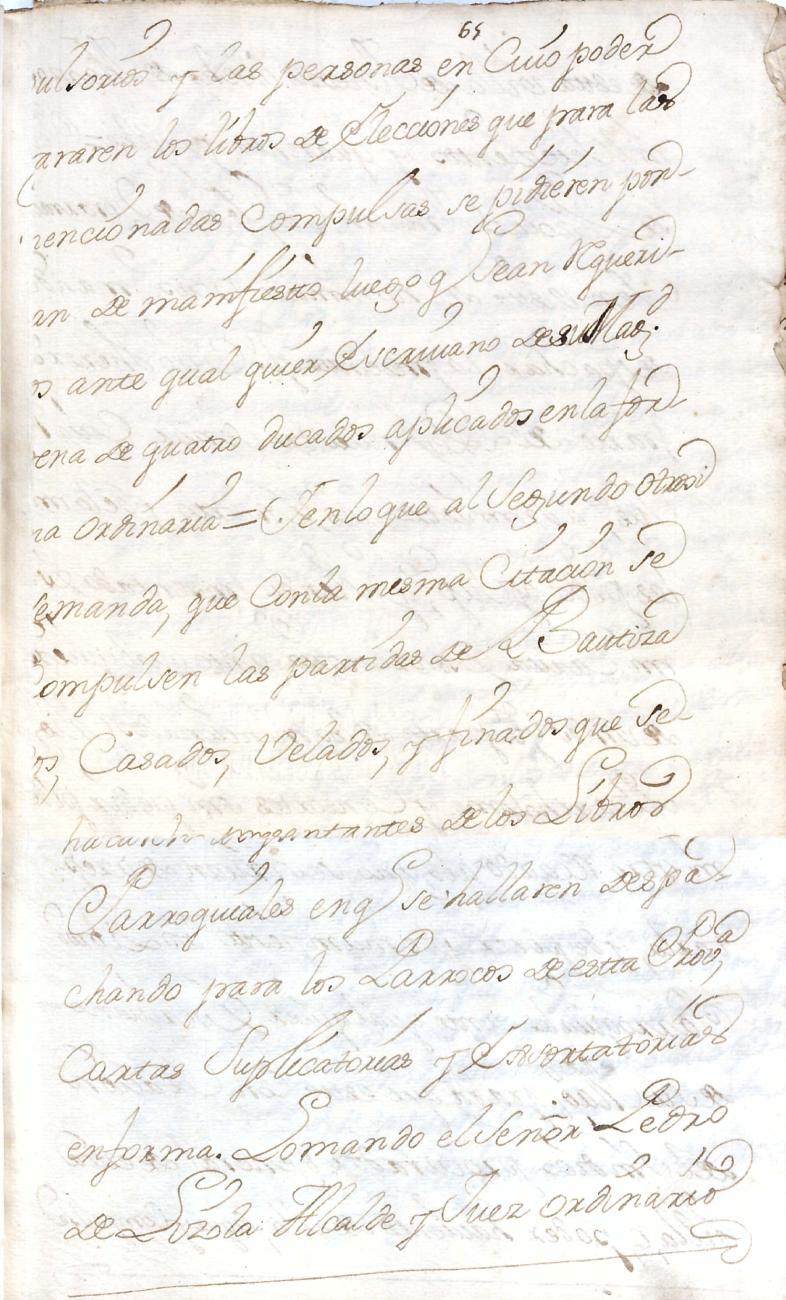 65
ulsorios y las personas en Cuio poder
araren los libros de Elecciones que para las
encionadas Compulsas se pidieren pon-
an de manifiesto luego q Sean Rqueri-
os ante qual quier Escriuano de su Magd.
ena de quatro ducados aplicados en la for
ma ordinaria = Y en lo que al Segundo otrosi
emanda, que Con la mesma Citacion se
ompulsen las partidas de Bautiza
os, Casados, Velados, y finados que se
de los Libros
Parroquiales en q Se hallaren despa-
chando para los Parrocos de estta Prova
Cartas Suplicatorias y Exsortatorias
en forma. Lo mando el Señor Pedro
de Lizola Alcalde y Juez ordinario